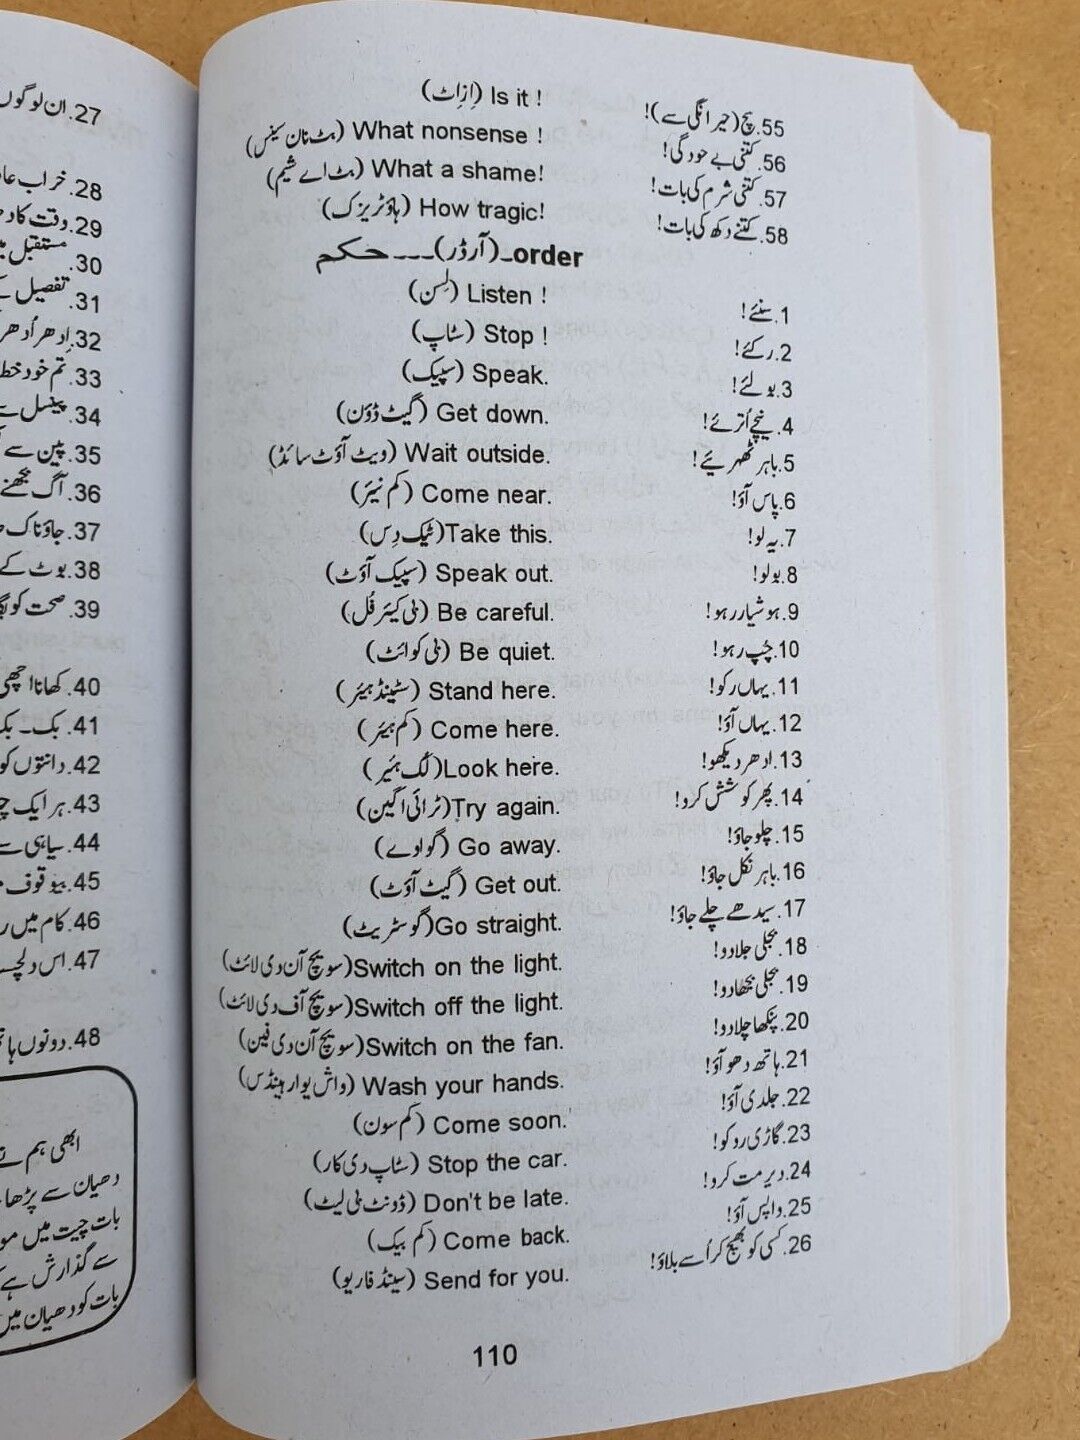 55. سچ (حیرانگی سے)! (اِزاِٹ) Is it !
56. کتنی بے حودگی! (بٹ نان سینس) What nonsense !
57. کتنی شرم کی بات! (بٹ اے شیم) What a shame!
58. کتنے دکھ کی بات! (ہاؤ ٹریزک) How tragic!
order۔(آرڈر)۔۔۔حکم
1. سنئے! (لِسن) Listen !
2. رکئے! (سٹاپ) Stop !
3. بولئے! (سپیک) Speak.
4. نیچے اُترئے! (گیٹ ڈؤن) Get down.
5. باہر ٹھہریئے! (ویٹ آؤٹ سائڈ) Wait outside.
6. پاس آؤ! (کم نیئر) Come near.
7. یہ لو! (ٹیک دِس) Take this.
8. بولو! (سپیک آؤٹ) Speak out.
9. ہوشیار رہو! (بی کیئر فُل) Be careful.
10. چُپ رہو! (بی کوائٹ) Be quiet.
11. یہاں رکو! (سٹینڈ ہیئر) Stand here.
12. یہاں آؤ! (کم ہیئر) Come here.
13. ادھر دیکھو! (لُک ہئیر) Look here.
14. پھر کوشش کرو! (ٹرائی اگین) Try again.
15. چلو جاؤ! (گو اوے) Go away.
16. باہر نکل جاؤ! (گیٹ آؤٹ) Get out.
17. سیدھے چلے جاؤ! (گو سٹریٹ) Go straight.
18. بجلی جلا دو! (سویچ آن دی لائٹ) Switch on the light.
19. بجلی بجھا دو! (سویچ آف دی لائٹ) Switch off the light.
20. پنکھا چلا دو! (سویچ آن دی فین) Switch on the fan.
21. ہاتھ دھو آؤ! (واش یوار ہینڈس) Wash your hands.
22. جلدی آؤ! (کم سون) Come soon.
23. گاڑی روکو! (سٹاپ دی کار) Stop the car.
24. دیر مت کرو! (ڈونٹ بی لیٹ) Don't be late.
25. واپس آؤ! (کم بیک) Come back.
26. کسی کو بھیج کر اُسے بلاؤ! (سینڈ فار یو) Send for you.
110
27. ان لوگوں
28. خراب
29. وقت کا
30. مستقبل
31. تفصیل
32. اِدھر اُدھر
33. تم خود خط
34. پینسل سے
35. پین سے
36. آگ بجھنے
37. جاؤ ناک
38. بوٹ کے
39. صحت کو
40. کھانا اچھی
41. بک۔بک
42. دانتوں کو
43. ہر ایک
44. سیاہی سے
45. بیوقوف
46. کام میں
47. اس دلچسپ
48. دونوں
ابھی ہم نے
دھیان سے پڑھا
بات چیت میں
سے گذارش ہے
بات کو دھیان میں